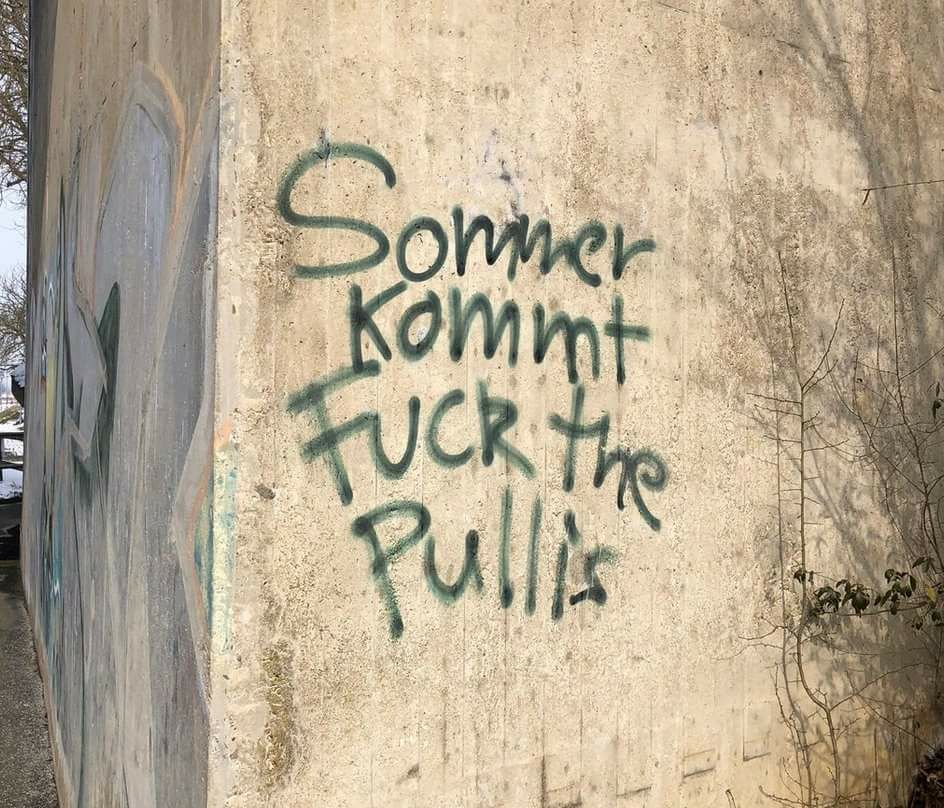 Sommer
Kommt
Fuck the
Pullis